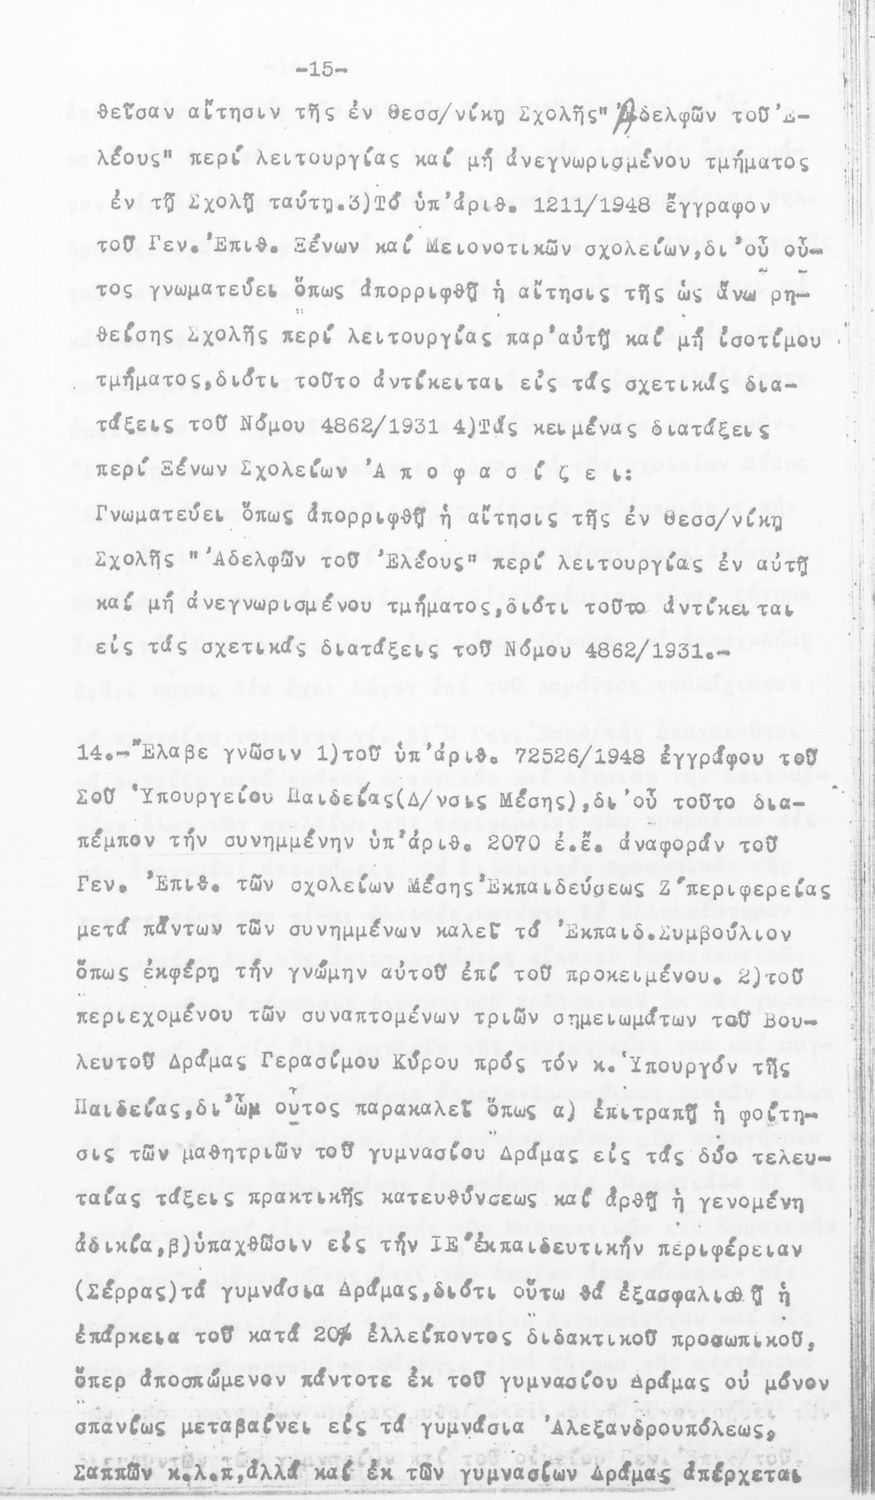 -15-
θεῖσαν αἴτησιν τῆς ἐν Θεσσ/νίκῃ Σχολῆς" Ἀδελφῶν τοῦ Ἐ-
λέους" περί λειτουργίας καί μή ἀνεγνωρισμένου τμήματος
ἐν τῇ Σχολῇ ταύτῃ.3)Τό ὑπ'ἀριθ. 1211/1948 ἔγγραφον
τοῦ Γεν.Ἐπιθ. Ξένων καί Μειονοτικῶν σχολείων,δι'οὗ οὗ-
τος γνωματεύει ὅπως ἀπορριφθῇ ἡ αἴτησις τῆς ὡς ἄνω ρη-
θείσης Σχολῆς περί λειτουργίας παρ'αὐτῇ καί μή ἰσοτίμου
τμήματος,διότι τοῦτο ἀντίκειται εἰς τάς σχετικάς δια-
τάξεις τοῦ Νόμου 4862/1931 4)Τάς κειμένας διατάξεις
περί Ξένων Σχολείων Ἀ π ο φ α σ ί ζ ε ι:
Γνωματεύει ὅπως ἀπορριφθῇ ἡ αἴτησις τῆς ἐν Θεσσ/νίκῃ
Σχολῆς "Ἀδελφῶν τοῦ Ἐλέους" περί λειτουργίας ἐν αὐτῇ
καί μή ἀνεγνωρισμένου τμήματος,διότι τοῦτο ἀντίκειται
εἰς τάς σχετικάς διατάξεις τοῦ Νόμου 4862/1931.-
14.-Ἔλαβε γνῶσιν 1)τοῦ ὑπ'ἀριθ. 72526/1948 ἐγγράφου τοῦ
Σοῦ Ὑπουργείου Παιδείας(Δ/νσις Μέσης),δι'οὗ τοῦτο δια-
πέμπον τήν συνημμένην ὑπ'ἀριθ. 2070 ἐ.ἔ. ἀναφοράν τοῦ
Γεν. Ἐπιθ. τῶν σχολείων Μέσης Ἐκπαιδεύσεως Ζ'περιφερείας
μετά πάντων τῶν συνημμένων καλεῖ τό Ἐκπαιδ.Συμβούλιον
ὅπως ἐκφέρῃ τήν γνώμην αὐτοῦ ἐπί τοῦ προκειμένου. 2)τοῦ
περιεχομένου τῶν συναπτομένων τριῶν σημειωμάτων τοῦ Βου-
λευτοῦ Δράμας Γερασίμου Κύρου πρός τόν κ.Ὑπουργόν τῆς
Παιδείας,δι'ὧν οὗτος παρακαλεῖ ὅπως α) ἐπιτραπῇ ἡ φοίτη-
σις τῶν μαθητριῶν τοῦ γυμνασίου Δράμας εἰς τάς δύο τελευ-
ταίας τάξεις πρακτικῆς κατευθύνσεως καί ἀρθῇ ἡ γενομένη
ἀδικία,β)ὑπαχθῶσιν εἰς τήν ΙΕ'ἐκπαιδευτικήν περιφέρειαν
(Σέρρας)τά γυμνάσια Δράμας,διότι οὕτω θά ἐξασφαλισθῇ ἡ
ἐπάρκεια τοῦ κατά 20% ἐλλείποντος διδακτικοῦ προσωπικοῦ,
ὅπερ ἀποσπώμενον πάντοτε ἐκ τοῦ γυμνασίου Δράμας οὐ μόνον
σπανίως μεταβαίνει εἰς τά γυμνάσια Ἀλεξανδρουπόλεως,
Σαππῶν κ.λ.π,ἀλλά καί ἐκ τῶν γυμνασίων Δράμας ἀπέρχεται